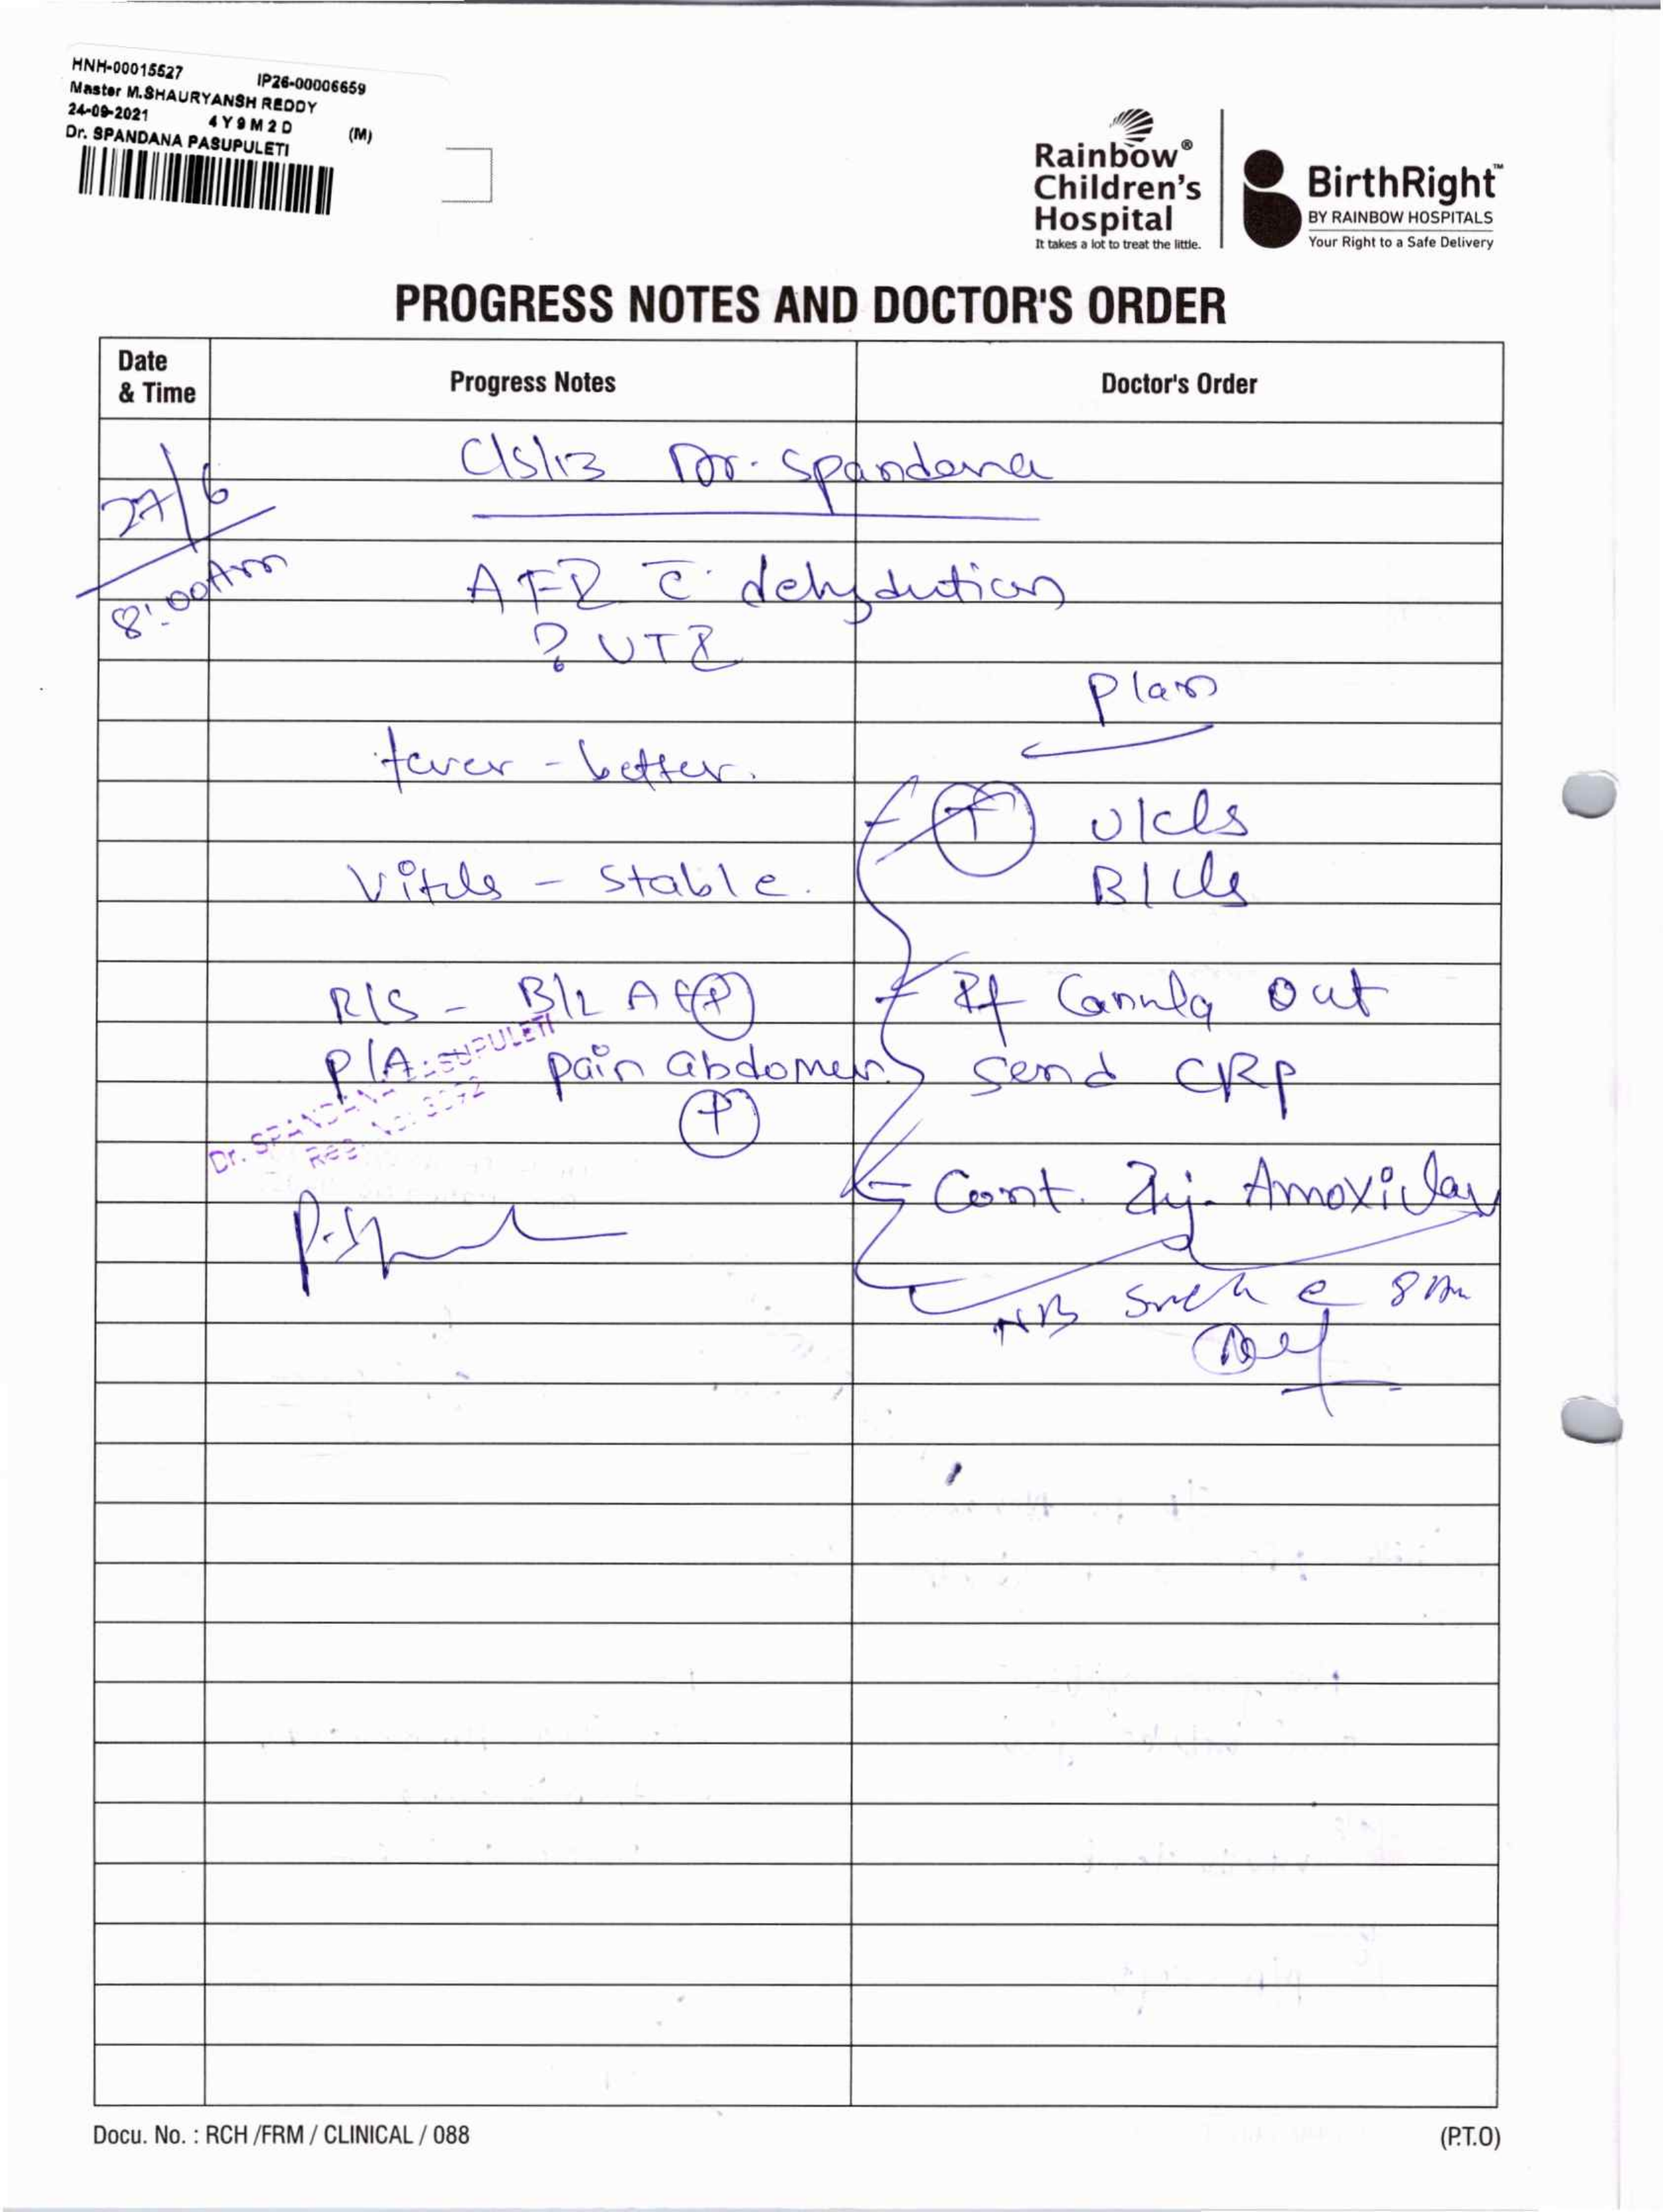 HNH-00015527 IP26-00006659
Master M.SHAURYANSH REDDY
24-09-2021 4Y9M2D (M)
Dr. SPANDANA PASUPULETI
Rainbow®
Children's
Hospital
It takes a lot to treat the little.
BirthRight™
BY RAINBOW HOSPITALS
Your Right to a Safe Delivery
PROGRESS NOTES AND DOCTOR'S ORDER
Date & Time Progress Notes Doctor's Order
27/6 C/S/B Dr. Spandana
8:00Am AFI c̄ dehydution
? UTI
Plan
fever - better.
(T) U/cls
Vitals - Stable. B/cls
R/S - B/L AE(P) If Canula out
P/A: pain abdomen send CRP
(P)
Dr. SPANDANA PASUPULETI
Reg. No:
Cont. Inj. Amoxiclav
NB 8 Am
Docu. No. : RCH /FRM / CLINICAL / 088 (P.T.O)